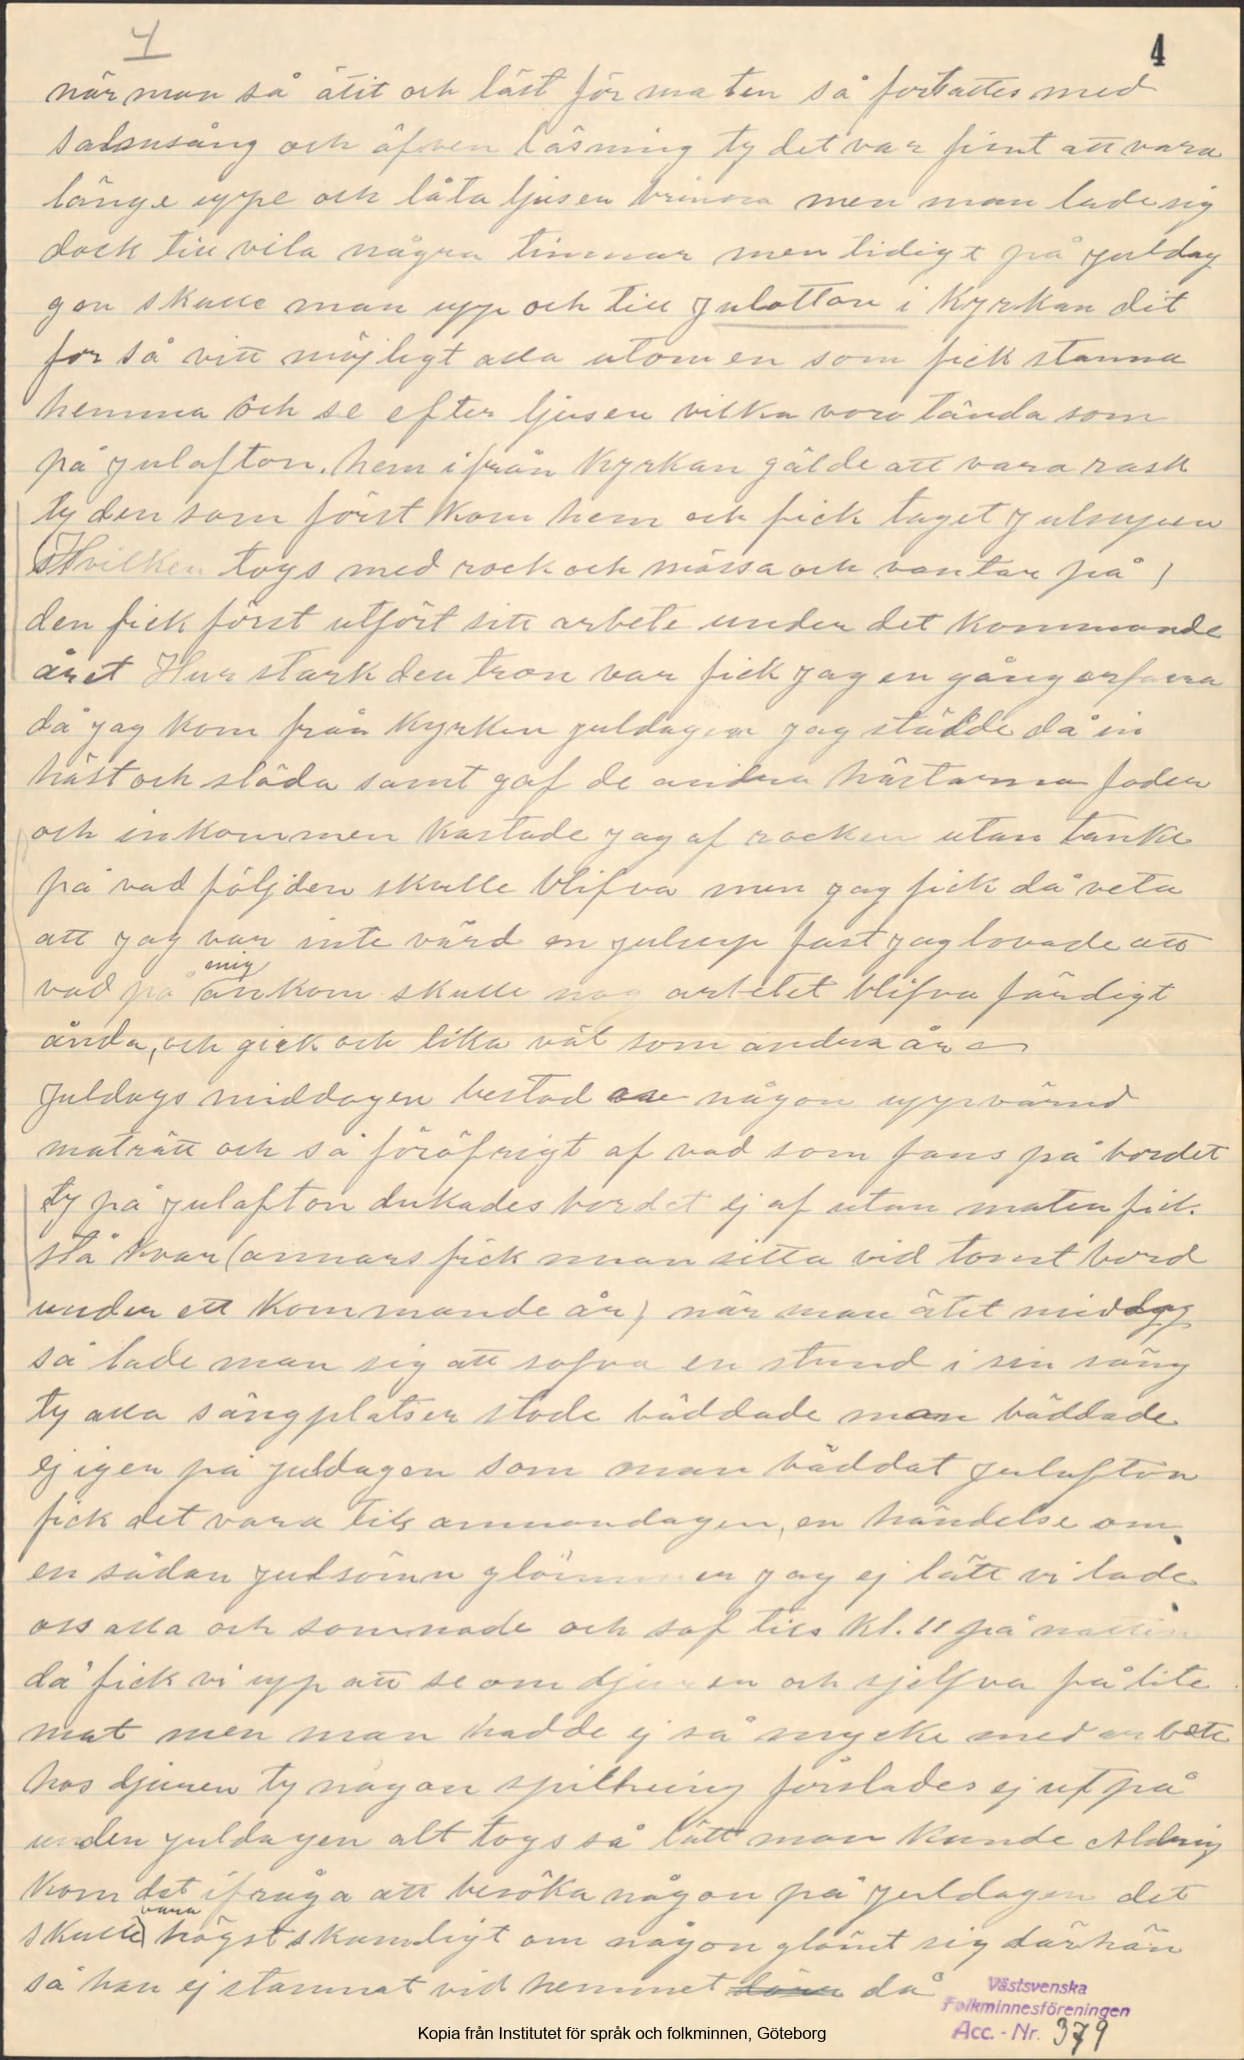 4
4
när man så ätit och läst för maten så fortsattes med
salmsång och äfven läsning ty det var fint att vara
länge uppe och låta ljusen brinna men man lade sig
dock till vila några timmar men tidigt på juldag
gen skulle man upp och till Julottan i Kyrkan dit
for så vitt möjligt alla utom en som fick stanna
hemma och se efter ljusen vilka voro tända som
på julafton. hem ifrån Kyrkan gälde att vara rask
ty den som först kom hem och fick taget julsupen
(Hvilken togs med rock och mössa och vantar på)
den fick först utfört sitt arbete under det kommande
året Hur stark den tron var fick jag en gång erfara
då jag kom från Kyrkan juldagen jag städde då in
häst och släda samt gaf de andra hästarna foder
och inkommen kastade jag af rocken utan tanke
på vad följden skulle blifva men jag fick då veta
att jag var inte värd en julsup fast jag lovade att
vad på mig ankom skulle nog arbetet blifva färdigt
ända, och gick och lika väl som andra år
Juldags middagen bestod av någon uppvärmd
maträtt och så föröfrigt af vad som fans på bordet
ty på julafton dukades bordet ej af utan maten fick
stå kvar (annars fick man sitta vid tomt bord
under ett kommande år) när man ätit middag
så lade man sig att sofva en stund i sin säng
ty alla sängplatser stode bäddade man bäddade
ej igen på juldagen som man bäddat julafton
fick det vara tils annandagen, en händelse om
en sådan julsömn glömmer jag ej lätt vi lade
oss alla och somnade och sof tils kl. 11 på natten
då fick vi upp att se om djuren och sjelfva få lite
mat men man hadde ej så mycke med arbete
hos djuren ty någon spillning forslades ej ut på
under juldagen alt togs så lätt man kunde Aldrig
kom det ifråga att besöka någon på juldagen det
skulle vara högst skamligt om någon glömt sig därhän
så han ej stannat vid hemmet då
Västsvenska
Folkminnesföreningen
Acc. - Nr. 379
Kopia från Institutet för språk och folkminnen, Göteborg